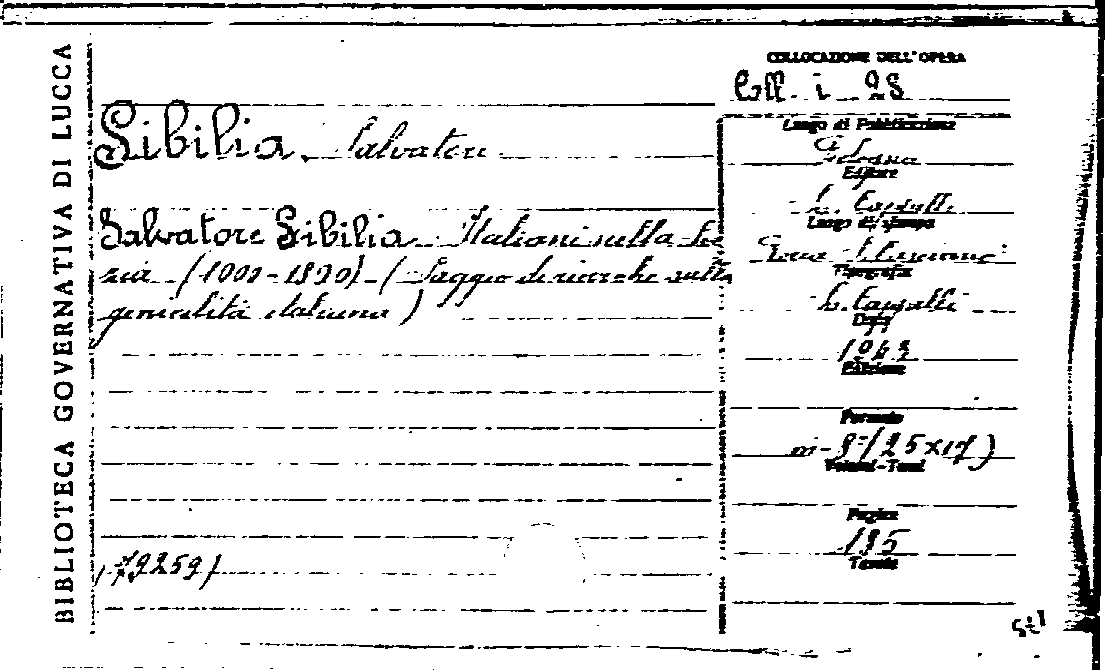 BIBLIOTECA GOVERNATIVA DI LUCCA
COLLOCAZIONE DELL'OPERA
Coll. i 98
Sibilia, Salvatore
Luogo di Pubblicazione
Bologna
Editore
L. Cappelli
Luogo di stampa
Rocca S. Casciano
Tipografia
L. Cappelli
Data
1943
Edizione
Formato
in-8° (25x17)
Volumi-Tomi
Pagine
195
Tavole
Salvatore Sibilia. Italiani nella
(Saggio di ricerche sulla
genialità italiana)